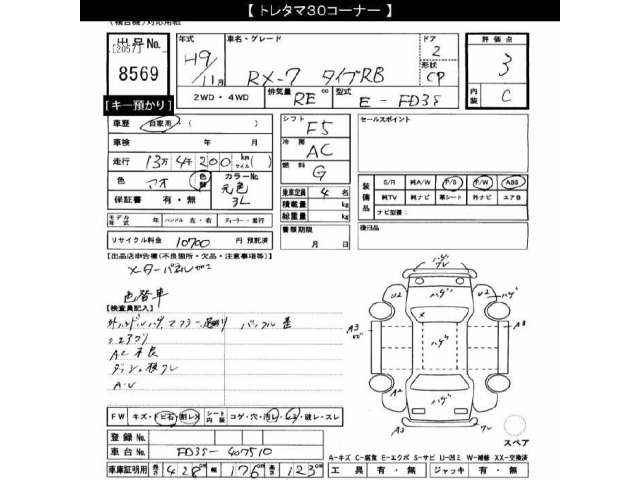 【 トレタマ30コーナー 】
出品No.
[2057]
8569
[キー預かり]
年式
H9/11月
車名・グレード
RX-7 タイプRB
ドア
2
形状
CP
評価点
3
内装
C
2WD・4WD
排気量 RE cc
型式 E-FD3S
車歴 自家用 ( )
車検 年 月
走行 13万4千200 km マイル ( )
色 アオ 色替
カラーNo. 元色 3L
保証書 有・無
モデル年式 年 ハンドル 左・右 ディーラー・並行
リサイクル料金 10700 円 預託済
シフト F5
冷房 AC
燃料 G
乗車定員 4 名
積載量 kg
総重量 kg
書類期限 月 日
セールスポイント
装備品
S/R 純A/W P/S P/W ABS
純TV 純ナビ 革シート 外ナビ エアB
ナビ型番:
後日品
【出品店申告欄(不良箇所・欠品・注意事項等)】
メーターパネル
色替車
【検査員記入】
AC不良
A・V
FW キズ・ビ石・割レ
シート内装 コゲ・穴・汚レ・シミ・破レ・スレ
登録No.
車台No. FD3S-407510
車庫証明用 長 428cm 幅 176cm 高さ 123cm
ハゲ
U2
ハゲ
U2
ハゲ
A3
ハゲ
A3
A2
ハゲ
A2
A3
ワレ
スペア
A-キズ C-腐食 E-エクボ S-サビ U-凹ミ W-補修 XX-交換済
工具 有・無 ジャッキ 有・無